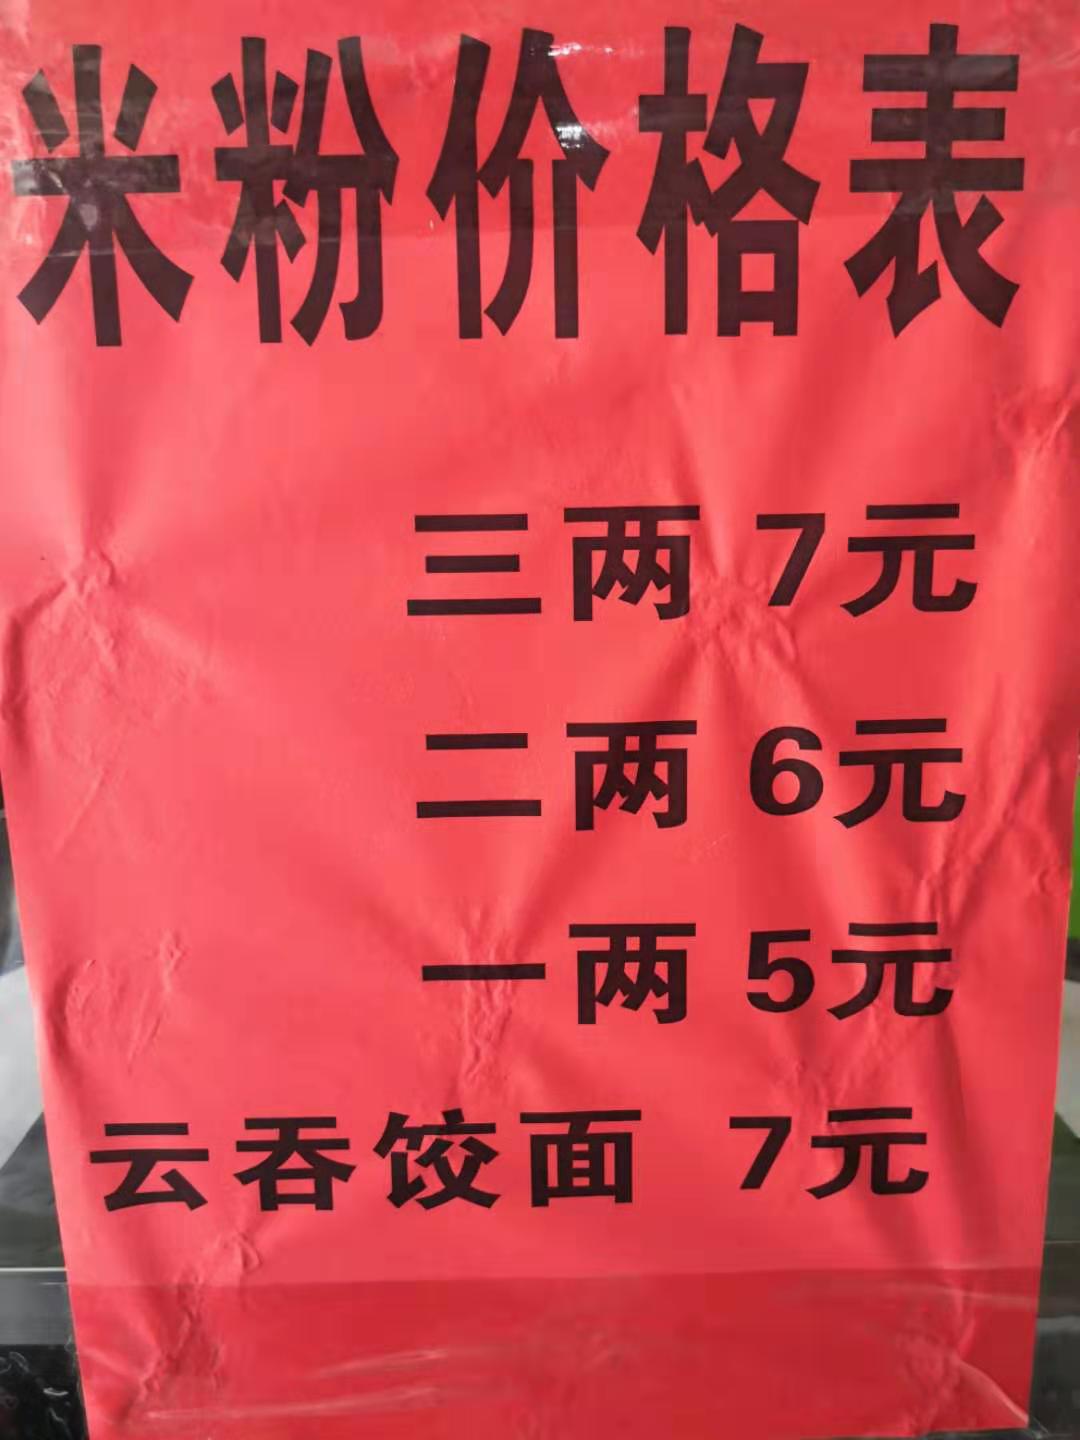 米粉价格表
三两 7元
二两 6元
一两 5元
云吞饺面 7元